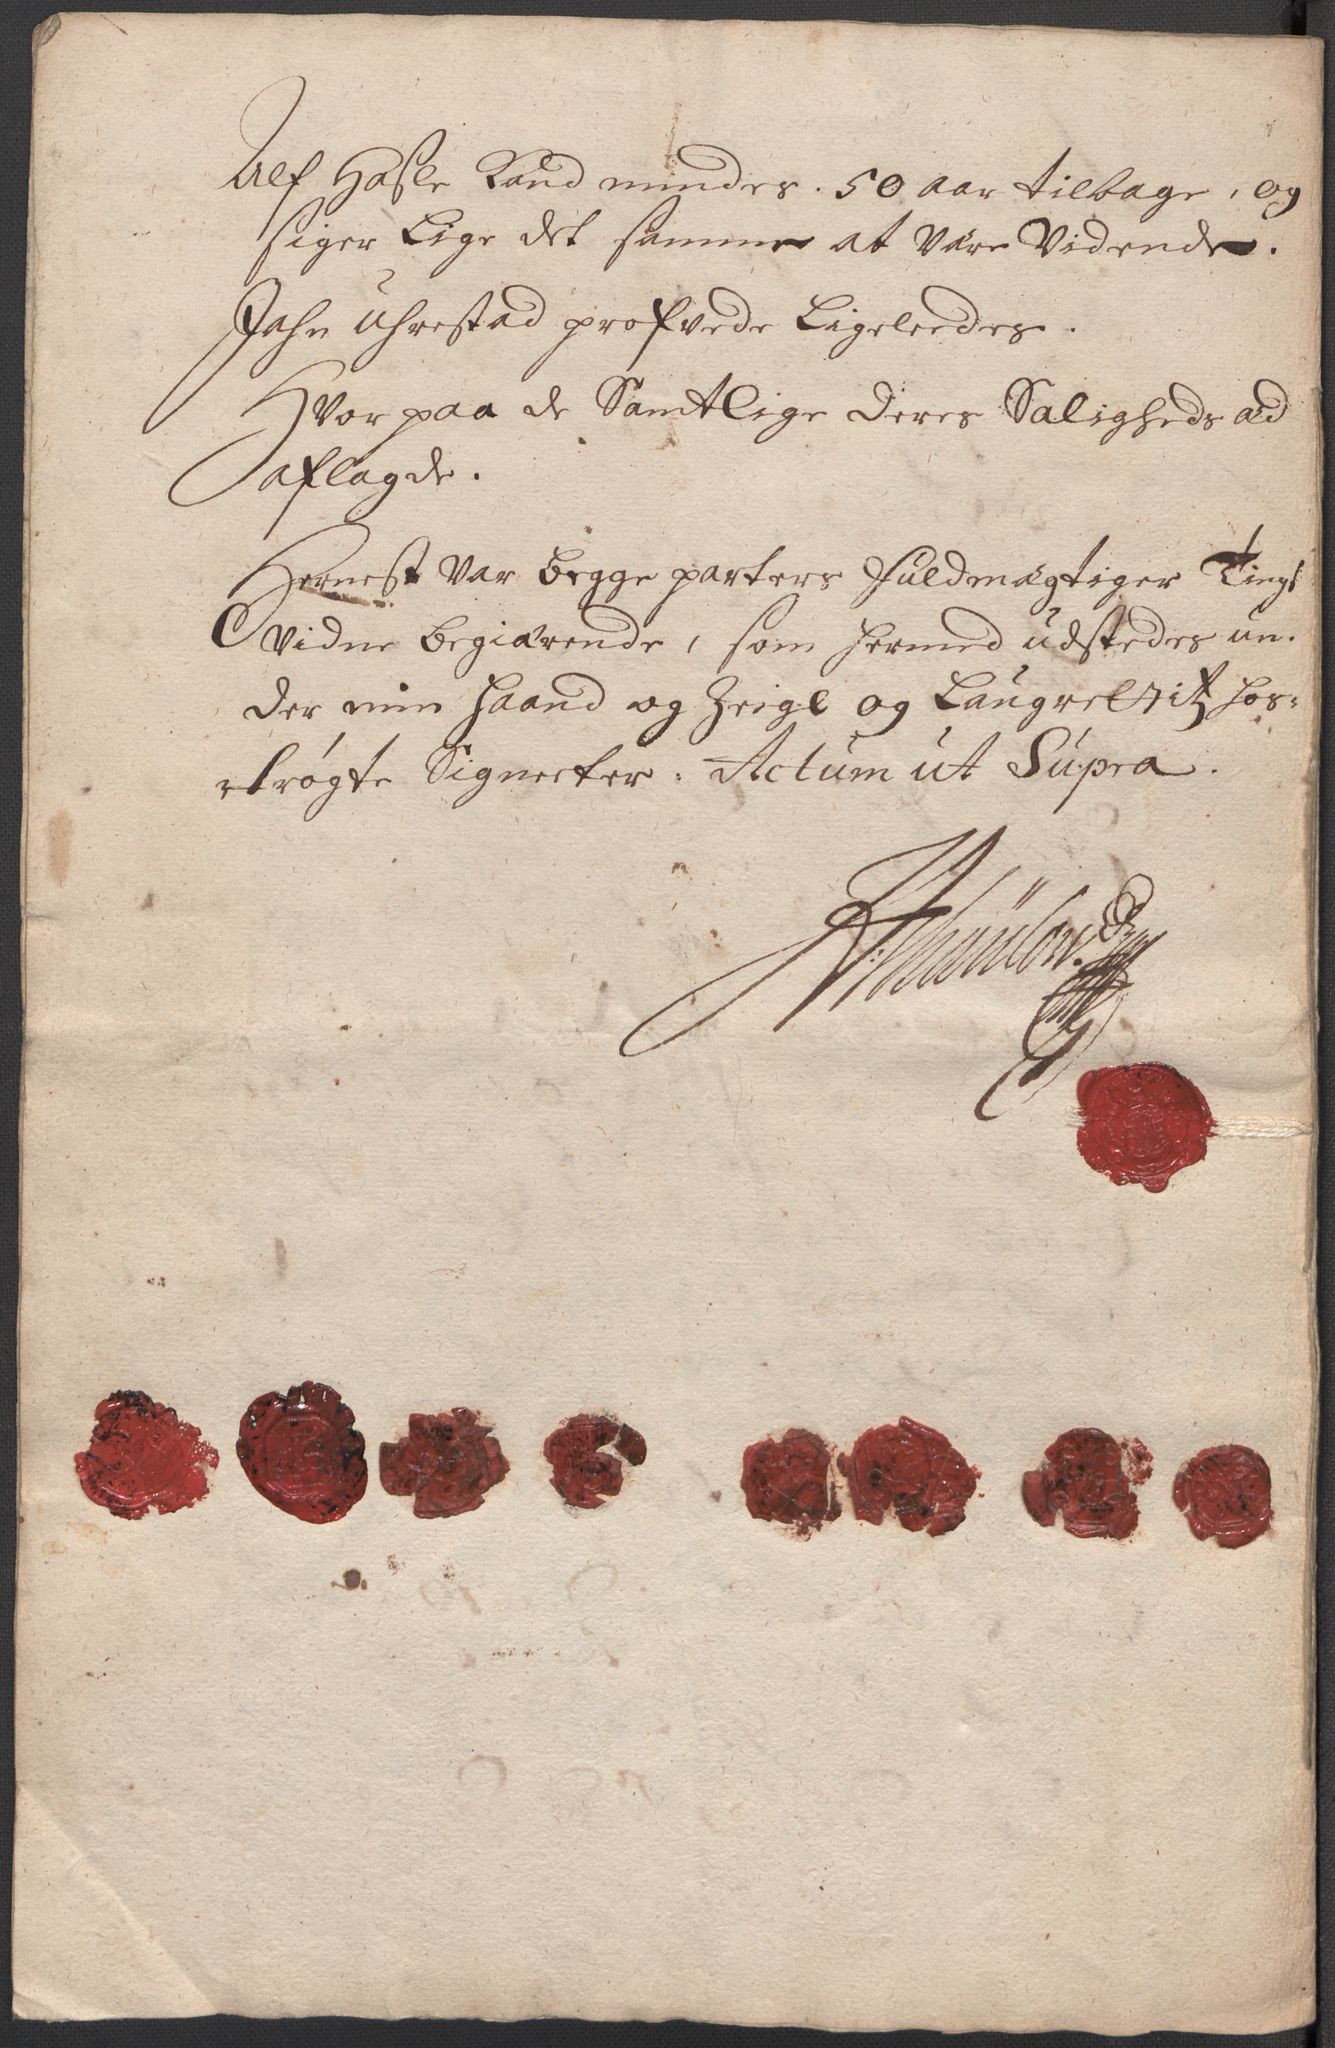 Alf Hasle Kand mindes. 50 aar tilbage, og
siger Lige det samme at være Vidende.
Jahn Uhrestad profvede Ligeleedes.
Hvor paa de Samtlige deres Saligheds æd
aflagde.
Hernest var begge parters fuldmægtiger Tings
Vidne begiærende, som hermed udstedes un.
der min haand og Zeigl og Laugrettitz hos-
trögte Signeter. Actum ut Supra.